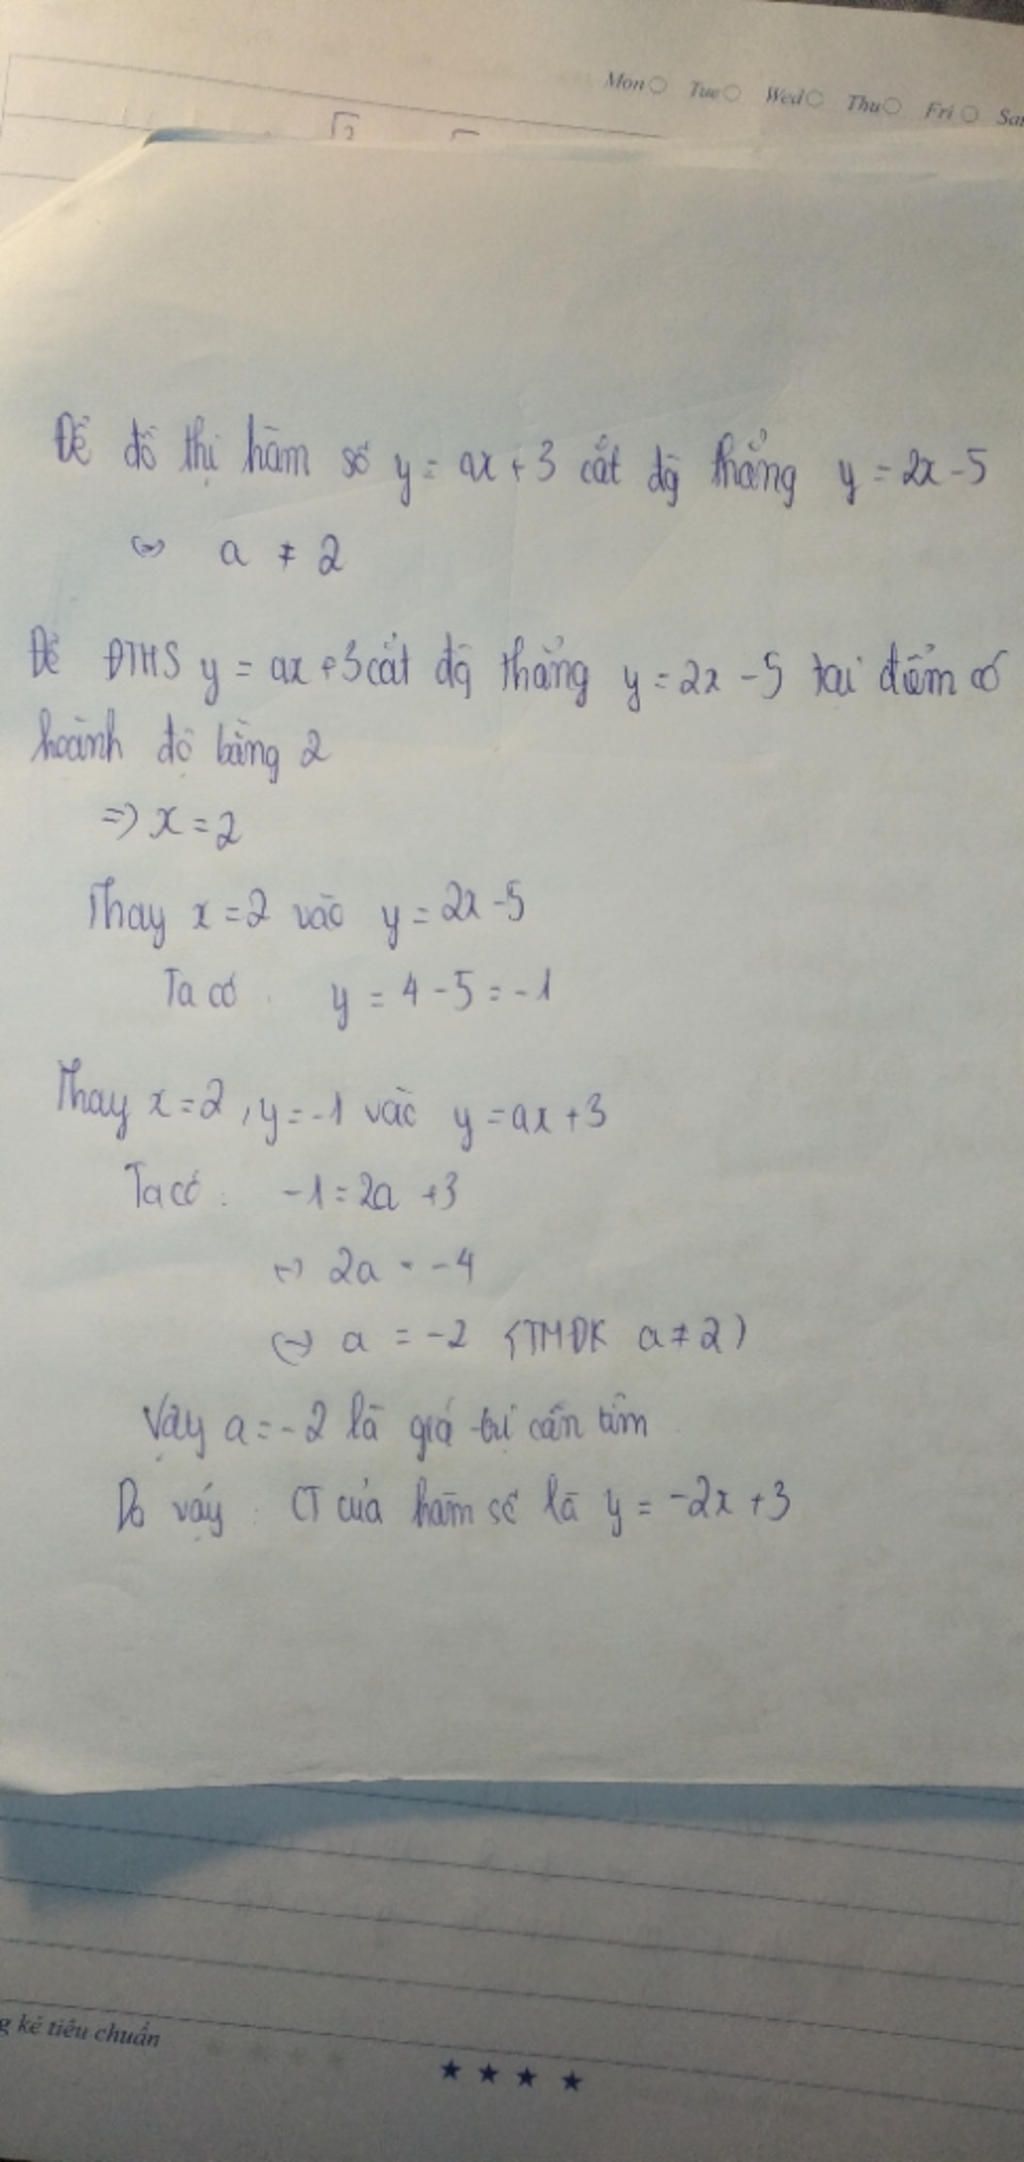 Mon Tue Wed Thu Fri Sat
Để đồ thị hàm số y = ax + 3 cắt đg thẳng y = 2x - 5
⇔ a ≠ 2
Để ĐTHS y = ax + 3 cắt đg thẳng y = 2x - 5 tại điểm có
hoành độ bằng 2
=> x = 2
Thay x = 2 vào y = 2x - 5
Ta có y = 4 - 5 = -1
Thay x = 2, y = -1 vào y = ax + 3
Ta có : -1 = 2a + 3
⇔ 2a = -4
⇔ a = -2 (TMĐK a ≠ 2)
Vậy a = -2 là giá trị cần tìm
Do vậy : CT của hàm số là y = -2x + 3
kẻ tiêu chuẩn